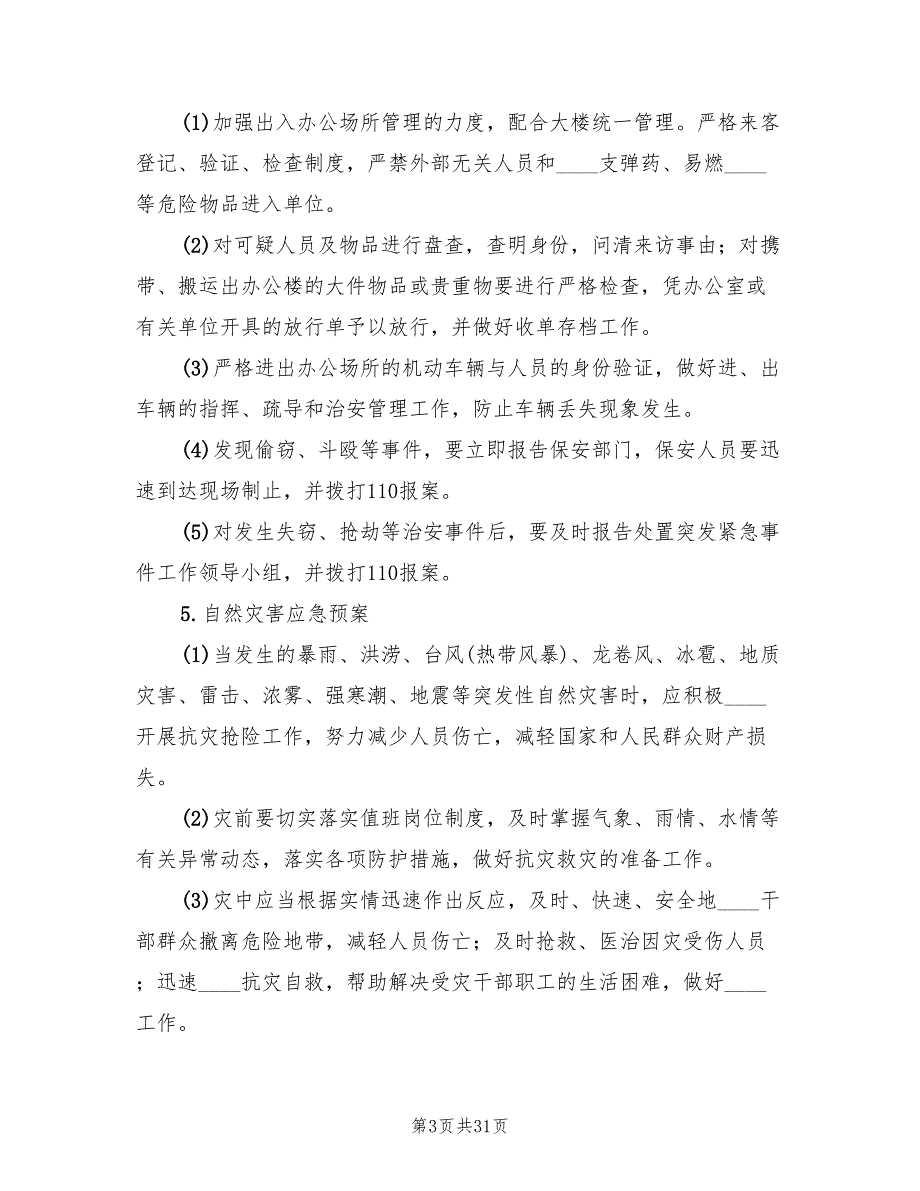 (1)加强出入办公场所管理的力度，配合大楼统一管理。严格来客
登记、验证、检查制度，严禁外部无关人员和____支弹药、易燃____
等危险物品进入单位。
(2)对可疑人员及物品进行盘查，查明身份，问清来访事由；对携
带、搬运出办公楼的大件物品或贵重物要进行严格检查，凭办公室或
有关单位开具的放行单予以放行，并做好收单存档工作。
(3)严格进出办公场所的机动车辆与人员的身份验证，做好进、出
车辆的指挥、疏导和治安管理工作，防止车辆丢失现象发生。
(4)发现偷窃、斗殴等事件，要立即报告保安部门，保安人员要迅
速到达现场制止，并拨打110报案。
(5)对发生失窃、抢劫等治安事件后，要及时报告处置突发紧急事
件工作领导小组，并拨打110报案。
5.自然灾害应急预案
(1)当发生的暴雨、洪涝、台风(热带风暴)、龙卷风、冰雹、地质
灾害、雷击、浓雾、强寒潮、地震等突发性自然灾害时，应积极____
开展抗灾抢险工作，努力减少人员伤亡，减轻国家和人民群众财产损
失。
(2)灾前要切实落实值班岗位制度，及时掌握气象、雨情、水情等
有关异常动态，落实各项防护措施，做好抗灾救灾的准备工作。
(3)灾中应当根据实情迅速作出反应，及时、快速、安全地____干
部群众撤离危险地带，减轻人员伤亡；及时抢救、医治因灾受伤人员
；迅速____抗灾自救，帮助解决受灾干部职工的生活困难，做好____
工作。
第3页共31页